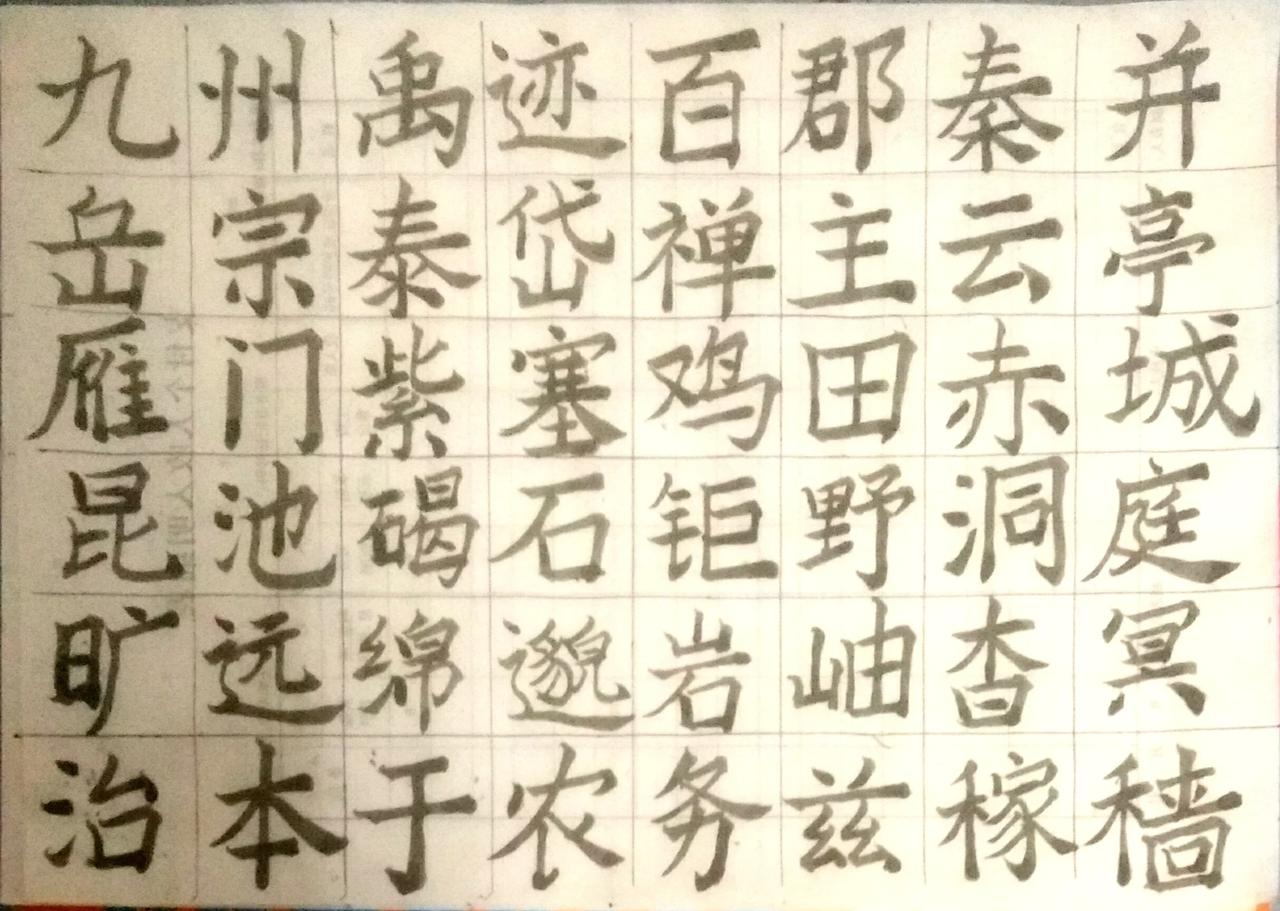 九州禹迹百郡秦并
岳宗泰岱禅主云亭
雁门紫塞鸡田赤城
昆池碣石钜野洞庭
旷远绵邈岩岫杳冥
治本于农务兹稼穑